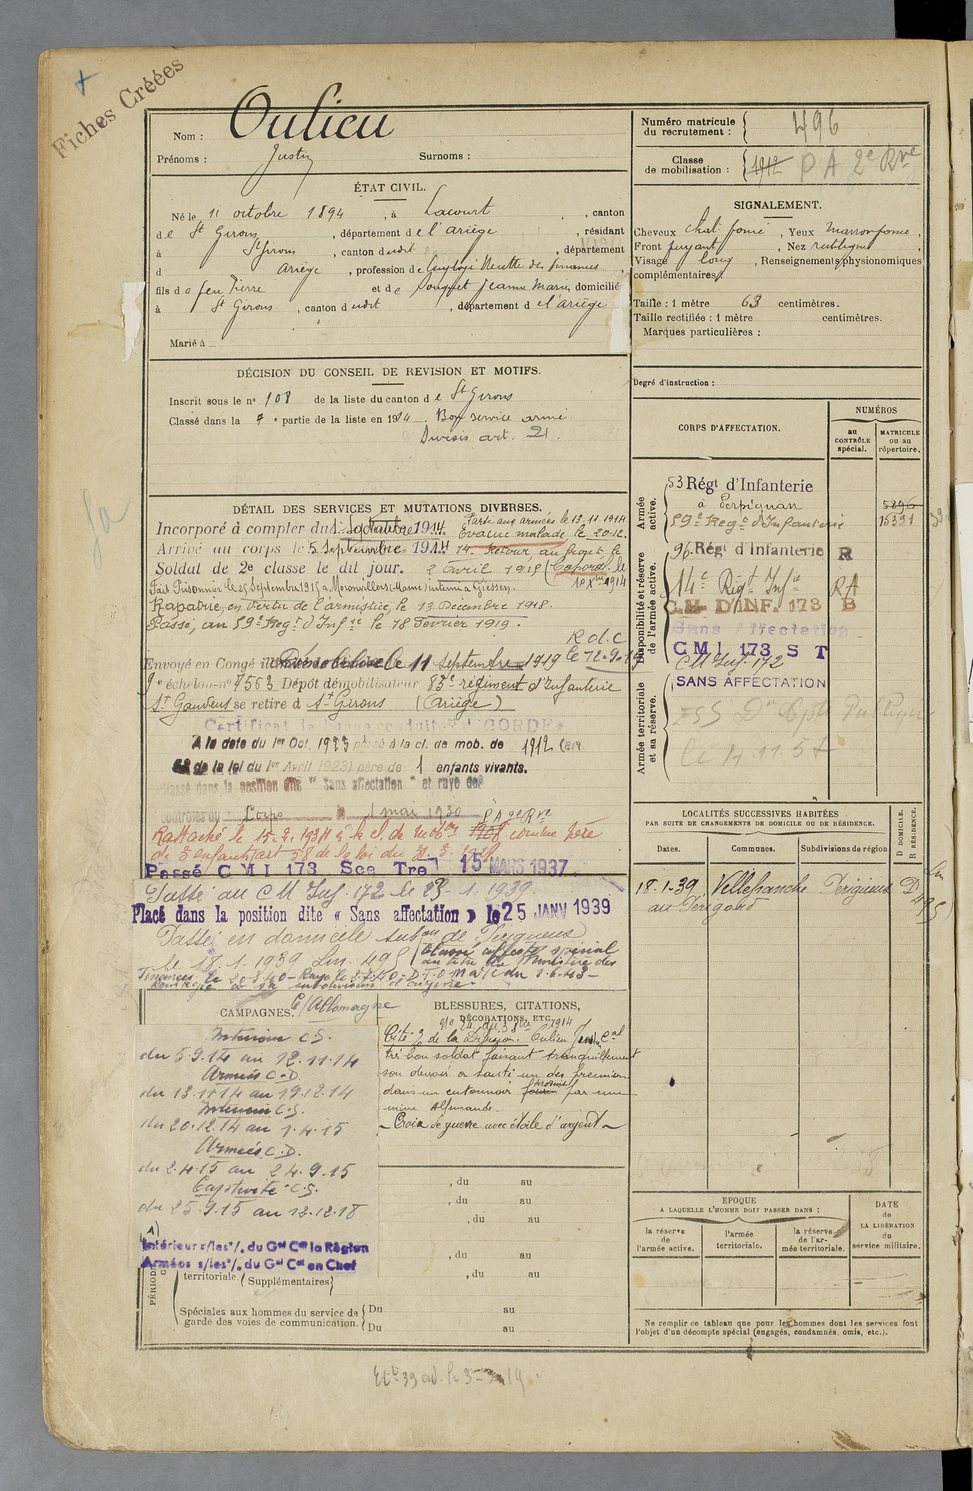 Fiches Créées
Nom : Oulieu
Prénoms : Justin Surnoms :
Numéro matricule du recrutement : 496
Classe de mobilisation : 1912 P A 2e Rve
ÉTAT CIVIL.
Né le 11 octobre 1894, à Lacourt, canton
de St Girons, département de l'Ariège, résidant
à St Girons, canton dudit, département
d Ariège, profession de
fils de feu Pierre et de Souquet Jeanne Marie domicilié
à St Girons, canton dudit, département de l'Ariège
Marié à
SIGNALEMENT.
Cheveux chat. foncé, Yeux marron foncé,
Front fuyant, Nez rectiligne,
Visage long, Renseignements physionomiques
complémentaires :
Taille : 1 mètre 63 centimètres.
Taille rectifiée : 1 mètre centimètres.
Marques particulières :
Degré d'instruction :
DÉCISION DU CONSEIL DE REVISION ET MOTIFS.
Inscrit sous le n° 108 de la liste du canton de St Girons
Classé dans la 7e partie de la liste en 1914. Bon service armé
Sursis art. 21.
DÉTAIL DES SERVICES ET MUTATIONS DIVERSES.
Incorporé à compter du 1 Septembre 1914. Parti aux armées le 13.11.1914
Arrivé au corps le 5 Septembre 1914 Evacué malade le 20-12-
14. Retour au front le
Soldat de 2e classe le dit jour. 2 avril 1915 (Caporal le
Fait Prisonnier le 25 Septembre 1915 à Moronvillers (Marne) interné à Giessen.
Rapatrié, en vertu de l'armistice, le 13 Décembre 1918.
Passé, au 59e Regt d'Infie le 18 Février 1919.
R d. C
Envoyé en Congé le 11 septembre 1919
9e échelon n° 4563 Dépôt démobilisateur 83e régiment d'Infanterie
St Gaudens se retire à St Girons (Ariège)
A la date du 1er Oct. 1923 passé à la cl. de mob. de 1912 (art.
58 de la loi du 1er Avril 1923) père de 1 enfants vivants.
Classé dans la position dite "Sans affectation" et rayé des
contrôles du Corps le 1 mai 1930 P A 2e Rve
Rattaché le 15.2.1934 à la cl. de mobon 1908 comme père
de 3 enfants art 58 de la loi du
Passé C M I 173 Sce Tre le 15 MARS 1937
Passé au C M Inf. 172 le 23-1.1939.
Placé dans la position dite « Sans affectation » le 25 JANV 1939
Passé en domicile subon de Périgueux
le 18.1.1939 Lm. 495
Classé affecté spécial
au titre du Ministère des
Finances le
CORPS D'AFFECTATION.
NUMÉROS
au CONTRÔLE spécial.
MATRICULE ou au répertoire.
Armée active.
53 Régt d'Infanterie
à Perpignan
59e Regt d'Infanterie 15391
Disponibilité et réserve de l'armée active.
96 Régt d'Infanterie R
14e Régt Infie RA
C.M. D'INF. 173 B
Sans Affectation
C M I 173 S T
C M Inf. 172
SANS AFFECTATION
Armée territoriale et sa réserve.
LOCALITÉS SUCCESSIVES HABITÉES
PAR SUITE DE CHANGEMENTS DE DOMICILE OU DE RÉSIDENCE.
Dates. Communes. Subdivisions de région
D DOMICILE. R RÉSIDENCE.
18-1-39 Villefranche Périgueux D
du Périgord
Lm 495
CAMPAGNES. C/Allemagne
Intérieur C.S.
du 5.9.14 au 12.11.14
Armées C.D.
du 13.11.14 au 19.12.14
Intérieur C.S.
du 20.12.14 au 1.4.15
Armées C.D.
du 2.4.15 au 24.9.15
Captivité C.S.
du 25.9.15 au 12.12.18
A)
Intérieur s/les °/. du Gal Ct la Région
Armées s/les °/. du Gal Ct en Chef
territoriale. Supplémentaires
Spéciales aux hommes du service de garde des voies de communication. Du au
Du au
BLESSURES, CITATIONS, DÉCORATIONS, ETC.
Cité à de la Division. Oulieu Justin, Cal
très bon soldat faisant tranquillement
son devoir a sauté un des premiers
dans un entonnoir formé par une
mine Allemande.
– Croix de guerre avec étoile d'argent –
, du au
, du au
, du au
, du au
, du au
EPOQUE
A LAQUELLE L'HOMME DOIT PASSER DANS :
la réserve de l'armée active.
l'armée territoriale.
la réserve de l'armée territoriale.
DATE de LA LIBÉRATION du service militaire.
Ne remplir ce tableau que pour les hommes dont les services font
l'objet d'un décompte spécial (engagés, condamnés, omis, etc.).